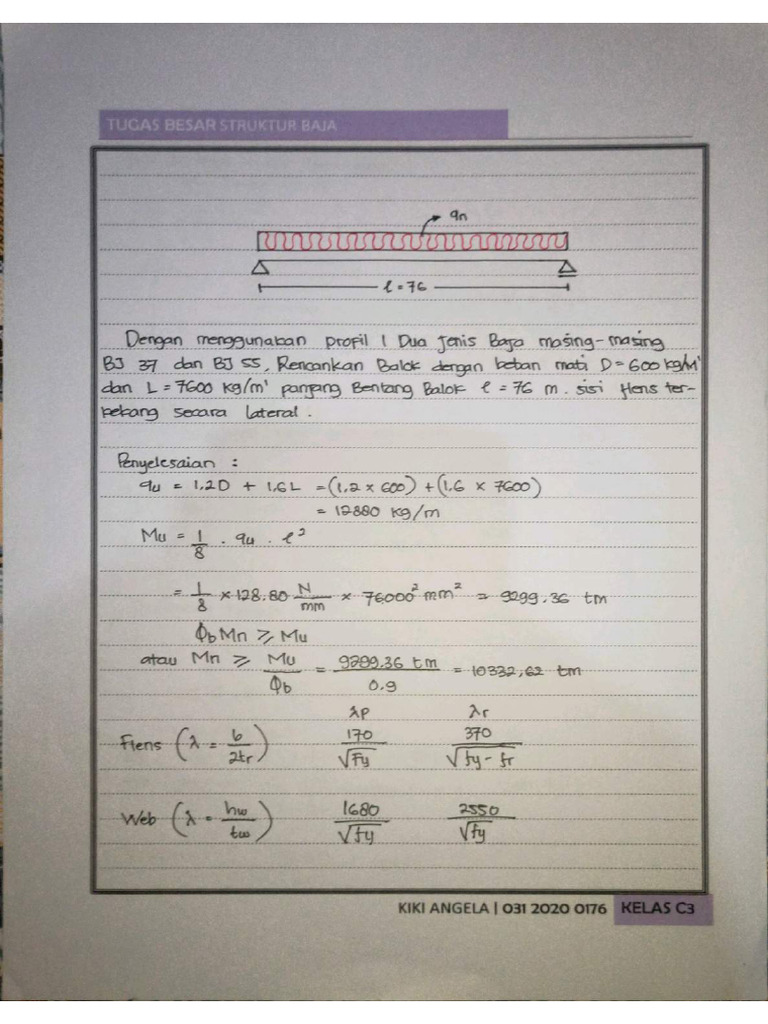 TUGAS BESAR STRUKTUR BAJA
qn
l = 76
Dengan menggunakan profil I Dua Jenis Baja masing-masing
BJ 37 dan BJ 55, Rencankan Balok dengan beban mati D = 600 kg/m'
dan L = 7600 kg/m' panjang Bentang Balok l = 76 m. sisi flens ter-
kekang secara lateral.
Penyelesaian :
qu = 1,2D + 1,6L = (1,2 x 600) + (1,6 x 7600)
= 12880 kg/m
Mu = 1/8 . qu . l²
= 1/8 x 128.80 N/mm x 76000² mm² = 9299.36 tm
ϕb Mn ≥ Mu
atau Mn ≥ Mu/ϕb = 9299.36 tm/0.9 = 10332,62 tm
λp λr
Flens (λ = b/2tf) 170/√Fy 370/√fy - fr
Web (λ = hw/tw) 1680/√fy 2550/√fy
KIKI ANGELA | 031 2020 0176 KELAS C3